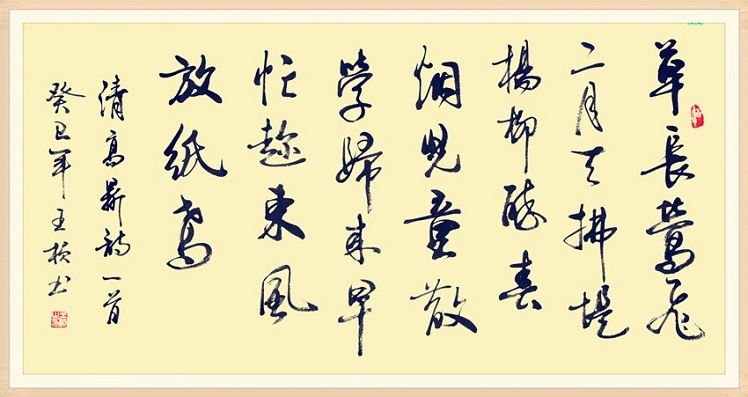 草長鶯飛
二月天拂堤
楊柳醉春
烟兒童散
學歸来早
忙趁東風
放紙鳶
清高鼎詩一首
癸巳年王书